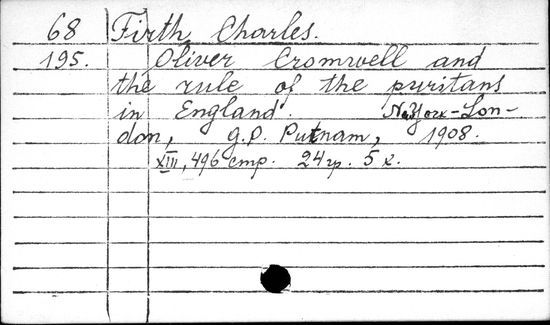 68 Firth Charles.
195. Oliver Cromwell and
the rule of the puritans
in England. New York - Lon-
don, G.P. Putnam, 1908.
XIII, 496 стр. 24 гр. 5 к.